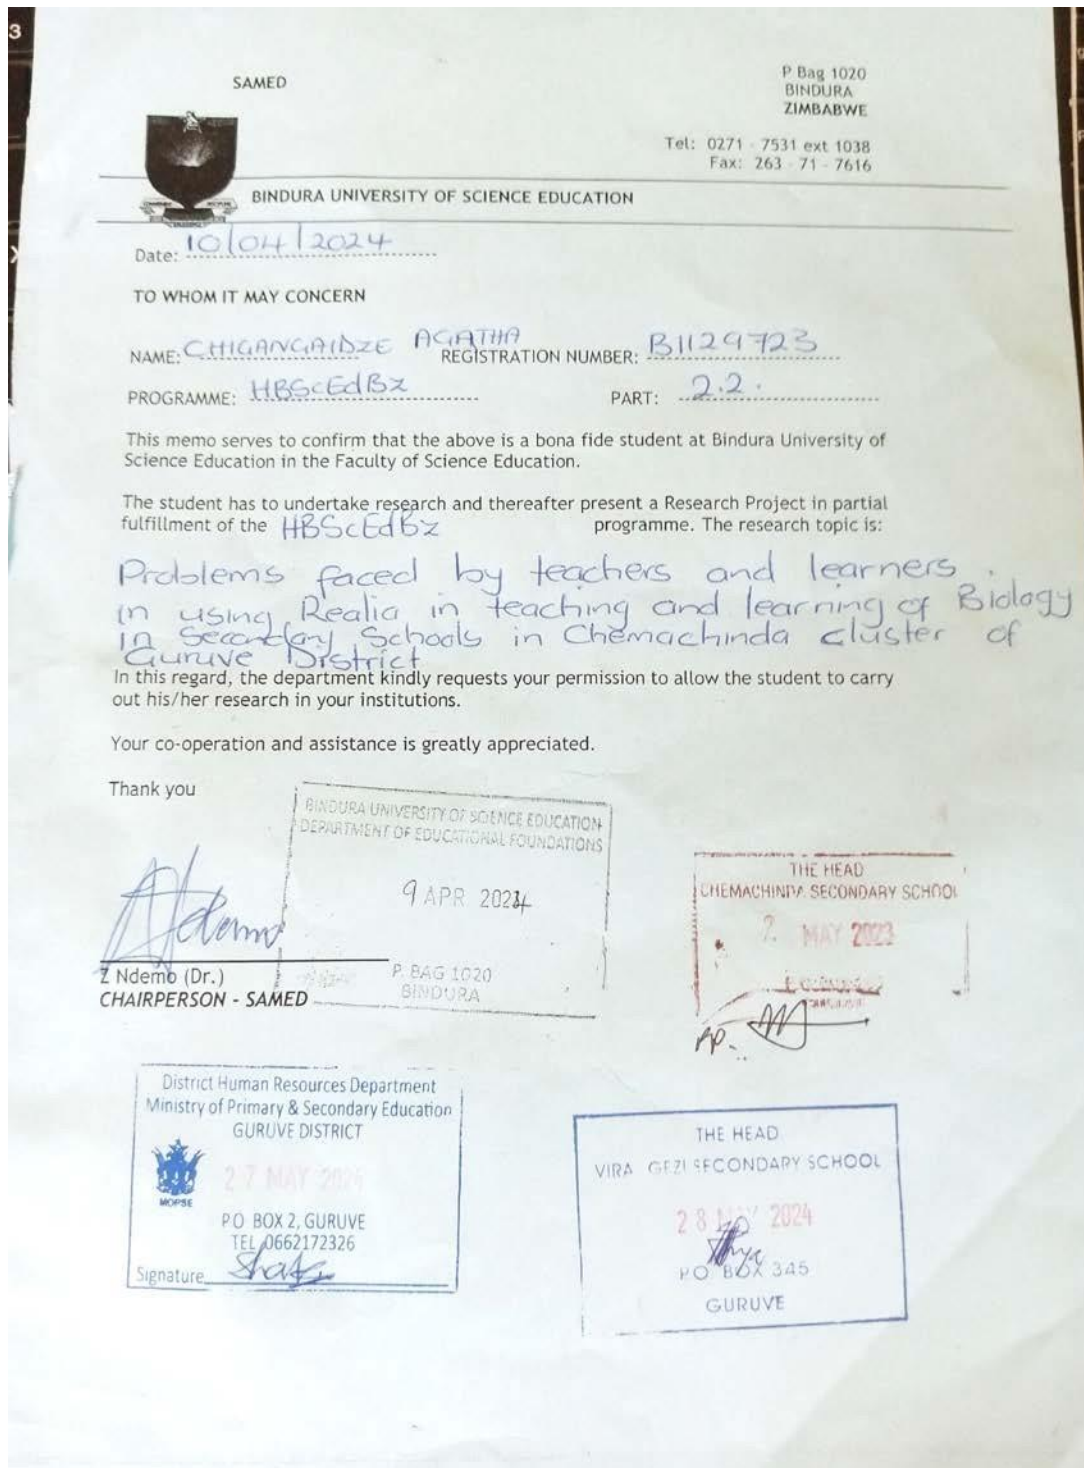 3
SAMED
P Bag 1020
BINDURA
ZIMBABWE
Tel: 0271 - 7531 ext 1038
Fax: 263 - 71 - 7616
BINDURA UNIVERSITY OF SCIENCE EDUCATION
Date: 10/04/2024
TO WHOM IT MAY CONCERN
NAME: CHIGANGAIDZE AGATHA REGISTRATION NUMBER: B1129723
PROGRAMME: HBScEdBz PART: 2.2.
This memo serves to confirm that the above is a bona fide student at Bindura University of
Science Education in the Faculty of Science Education.
The student has to undertake research and thereafter present a Research Project in partial
fulfillment of the HBScEdBz programme. The research topic is:
Problems faced by teachers and learners
in using Realia in teaching and learning of Biology
in Secondary Schools in Chemachinda cluster of
Guruve District
In this regard, the department kindly requests your permission to allow the student to carry
out his/her research in your institutions.
Your co-operation and assistance is greatly appreciated.
Thank you
BINDURA UNIVERSITY OF SCIENCE EDUCATION
DEPARTMENT OF EDUCATIONAL FOUNDATIONS
9 APR 2024
P. BAG 1020
BINDURA
Z Ndemo (Dr.)
CHAIRPERSON - SAMED
THE HEAD
CHEMACHINDA SECONDARY SCHOOL
2 MAY 2023
pp.
District Human Resources Department
Ministry of Primary & Secondary Education
GURUVE DISTRICT
MOPSE
27 MAY 2024
PO BOX 2, GURUVE
TEL 0662172326
Signature
THE HEAD
VIRA GEZI SECONDARY SCHOOL
28 MAY 2024
PO BOX 345
GURUVE